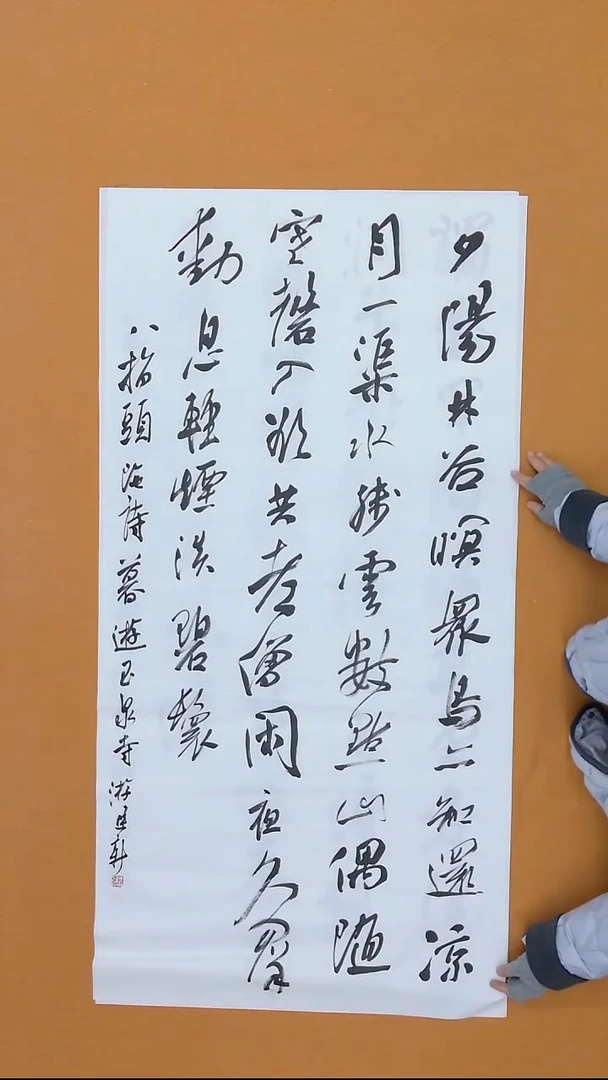 夕陽林谷暝眾鳥亦知還涼
月一渠水殘雲數點山偶隨
空磬入欲共老僧閑夜久羣
動息輕煙淡碧鬟
八指頭陀詩暮遊玉泉寺